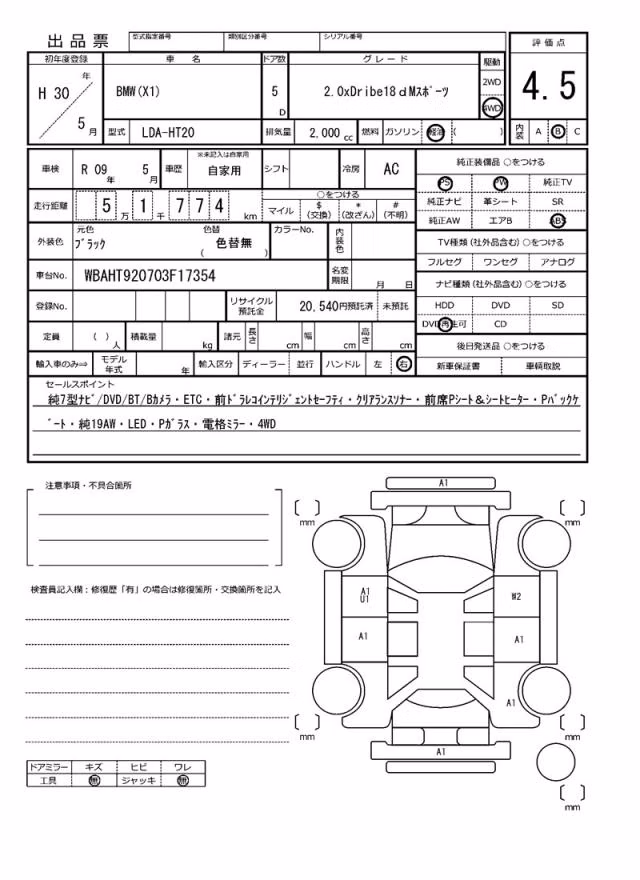 出品票
型式指定番号 類別区分番号 シリアル番号
評価点
4.5
内装 A B C
初年度登録 車名 ドア数 グレード 駆動
H 30 年 5 月
BMW(X1)
5 D
2.0xDribe18 d Mスポーツ
2WD
4WD
型式 LDA-HT20 排気量 2,000 cc 燃料 ガソリン 軽油 ( )
車検 R 09 年 5 月 車歴 ※未記入は自家用 自家用 シフト 冷房 AC
走行距離 5 万 1 千 7 7 4 km
○をつける
マイル $ (交換) * (改ざん) # (不明)
外装色 元色 ブラック 色替 色替無 ( ) カラーNo. 内装色
車台No. WBAHT920703F17354 名変期限 月 日
登録No. リサイクル預託金 20,540円預託済 未預託
定員 ( ) 人 積載量 kg 諸元 長さ cm 幅 cm 高さ cm
輸入車のみ⇒ モデル年式 年 輸入区分 ディーラー 並行 ハンドル 左 右
純正装備品 ○をつける
PS PW 純正TV
純正ナビ 革シート SR
純正AW エアB ABS
TV種類(社外品含む) ○をつける
フルセグ ワンセグ アナログ
ナビ種類(社外品含む) ○をつける
HDD DVD SD
DVD再生可 CD
後日発送品 ○をつける
新車保証書 車輌取説
セールスポイント
純7型ナビ/DVD/BT/Bカメラ・ETC・前ドラレコインテリジェントセーフティ・クリアランスソナー・前席Pシート&シートヒーター・Pバックゲ
ート・純19AW・LED・Pガラス・電格ミラー・4WD
注意事項・不具合箇所
検査員記入欄:修復歴「有」の場合は修復箇所・交換箇所を記入
ドアミラー キズ ヒビ ワレ
工具 無 ジャッキ 無
A1
mm
mm
A1
U1
W2
A1
A1
A1
mm
mm
A1
mm